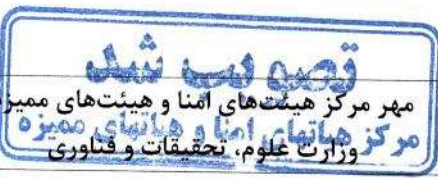 تصویب شد
مهر مرکز هیئت‌های امنا و هیئت‌های ممیزه
مرکز هیاتهای امنا و هیاتهای ممیزه
وزارت علوم، تحقیقات و فناوری